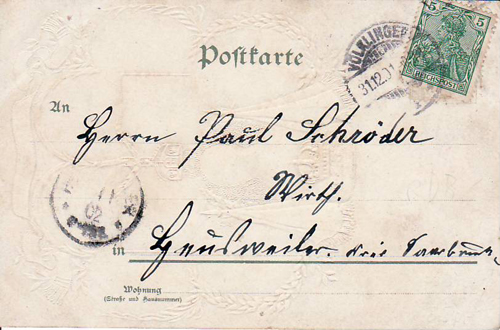 Postkarte
5 5
REICHSPOST
VÖLKLINGEN
31.12.01
An
Herrn Paul Schröder
Wirth.
02
in Heusweiler.
Wohnung
(Straße und Hausnummer)